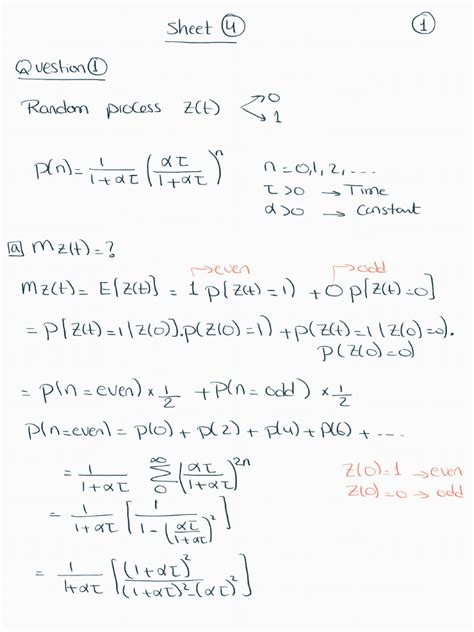 Sheet 4
1
Question 1
Random process Z(t) → 0
→ 1
P(n) = 1/(1+ατ) (ατ/(1+ατ))^n
n = 0,1,2,...
τ>0 → Time
α>0 → Constant
a mz(t) = ?
→ even → odd
mz(t) = E[Z(t)] = 1 P[Z(t)=1) + 0 P[Z(t)=0]
= P[Z(t)=1/Z(0)].P(Z(0)=1) + P(Z(t)=1/Z(0)=0).
P(Z(0)=0)
= P(n=even) × 1/2 + P(n=odd) × 1/2
P(n=even) = P(0) + P(2) + P(4) + P(6) + ...
= 1/(1+ατ) ∞Σ0 (ατ/(1+ατ))^2n
Z(0)=1 → even
Z(0)=0 → odd
= 1/(1+ατ) [1/(1-(ατ/(1+ατ))^2)]
= 1/(1+ατ) [(1+ατ)^2/((1+ατ)^2-(ατ)^2)]